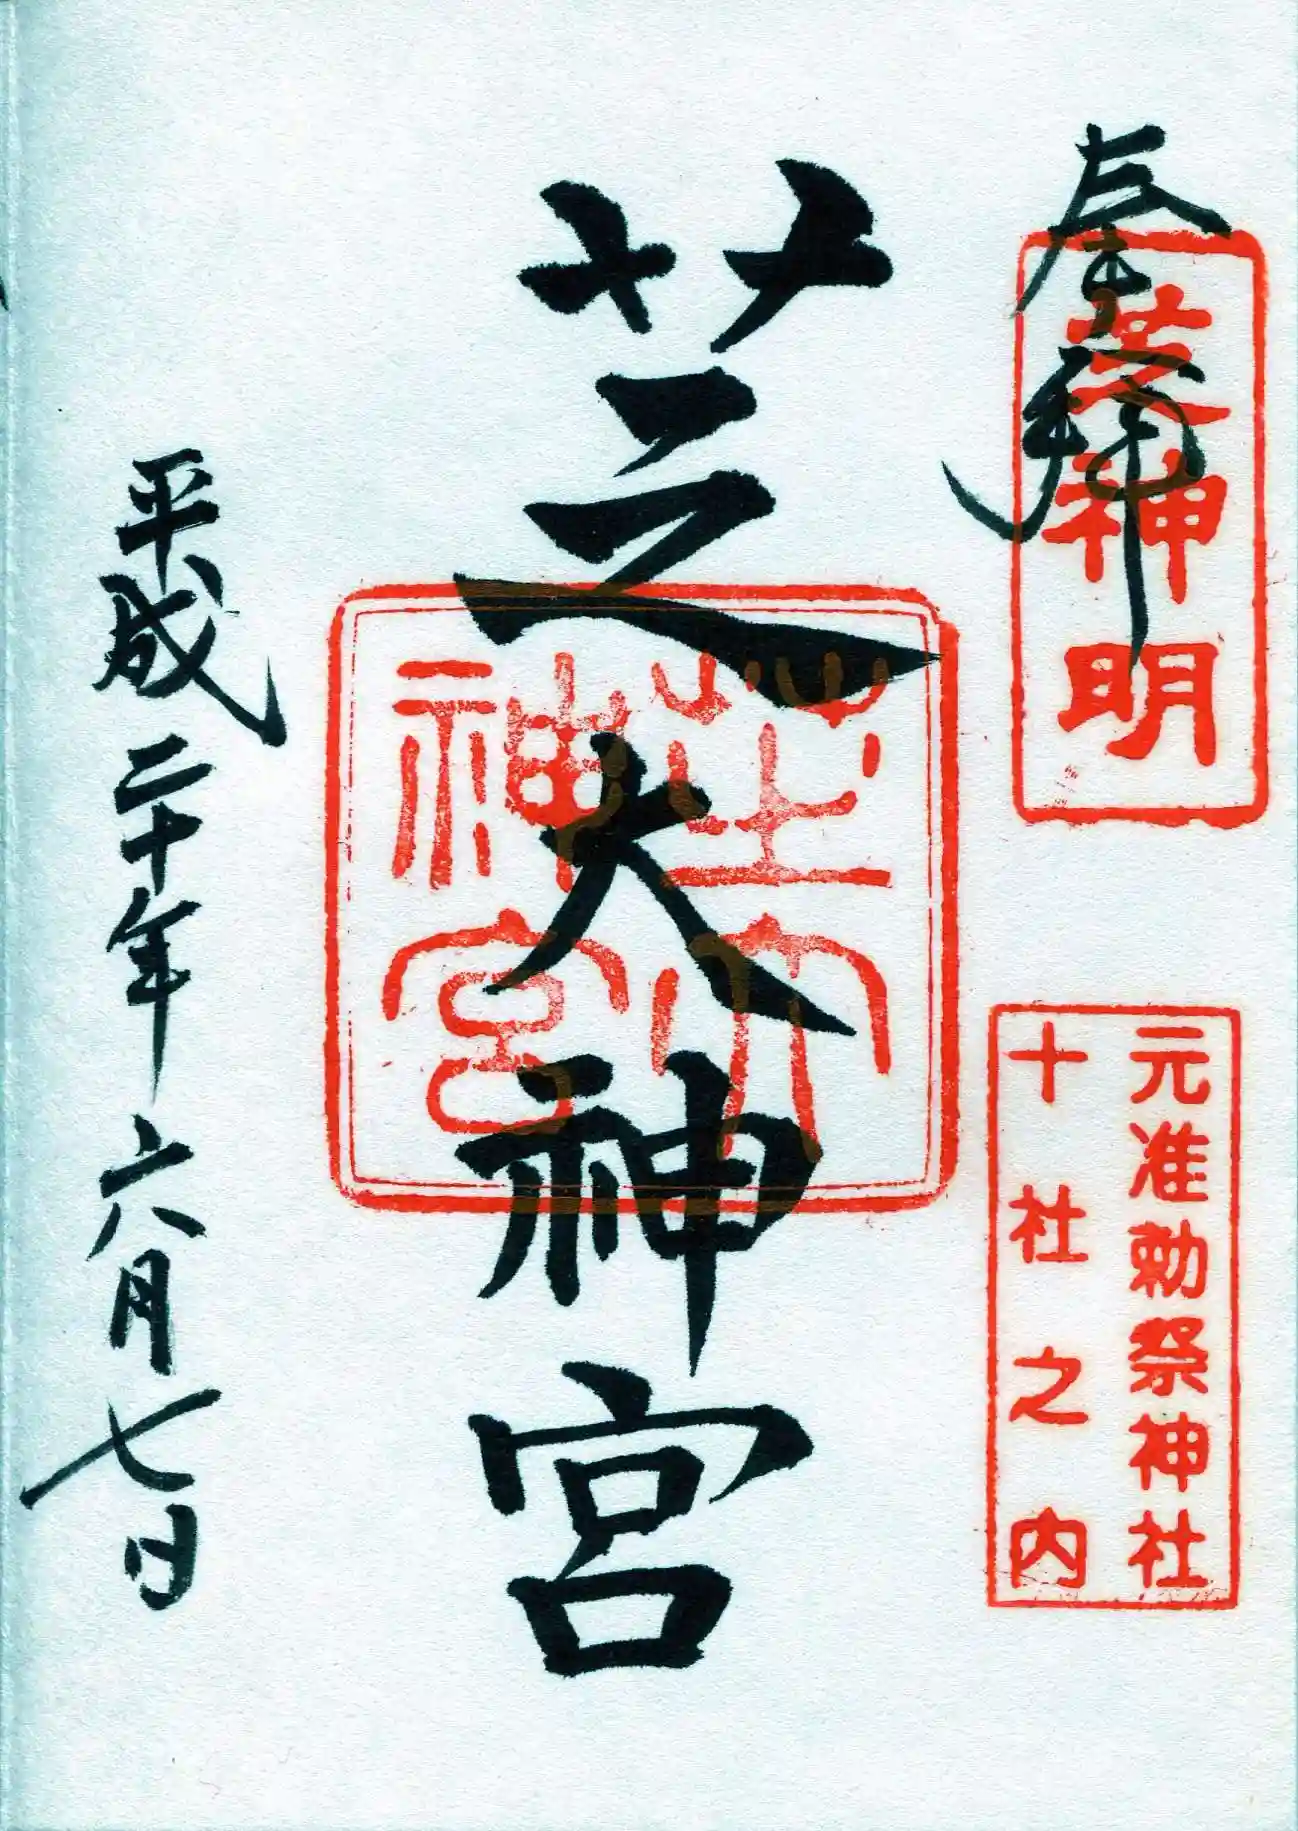 奉拝
芝神明
元准勅祭神社
十社之内
芝大神宮
芝大
神宮
平成二十年六月七日